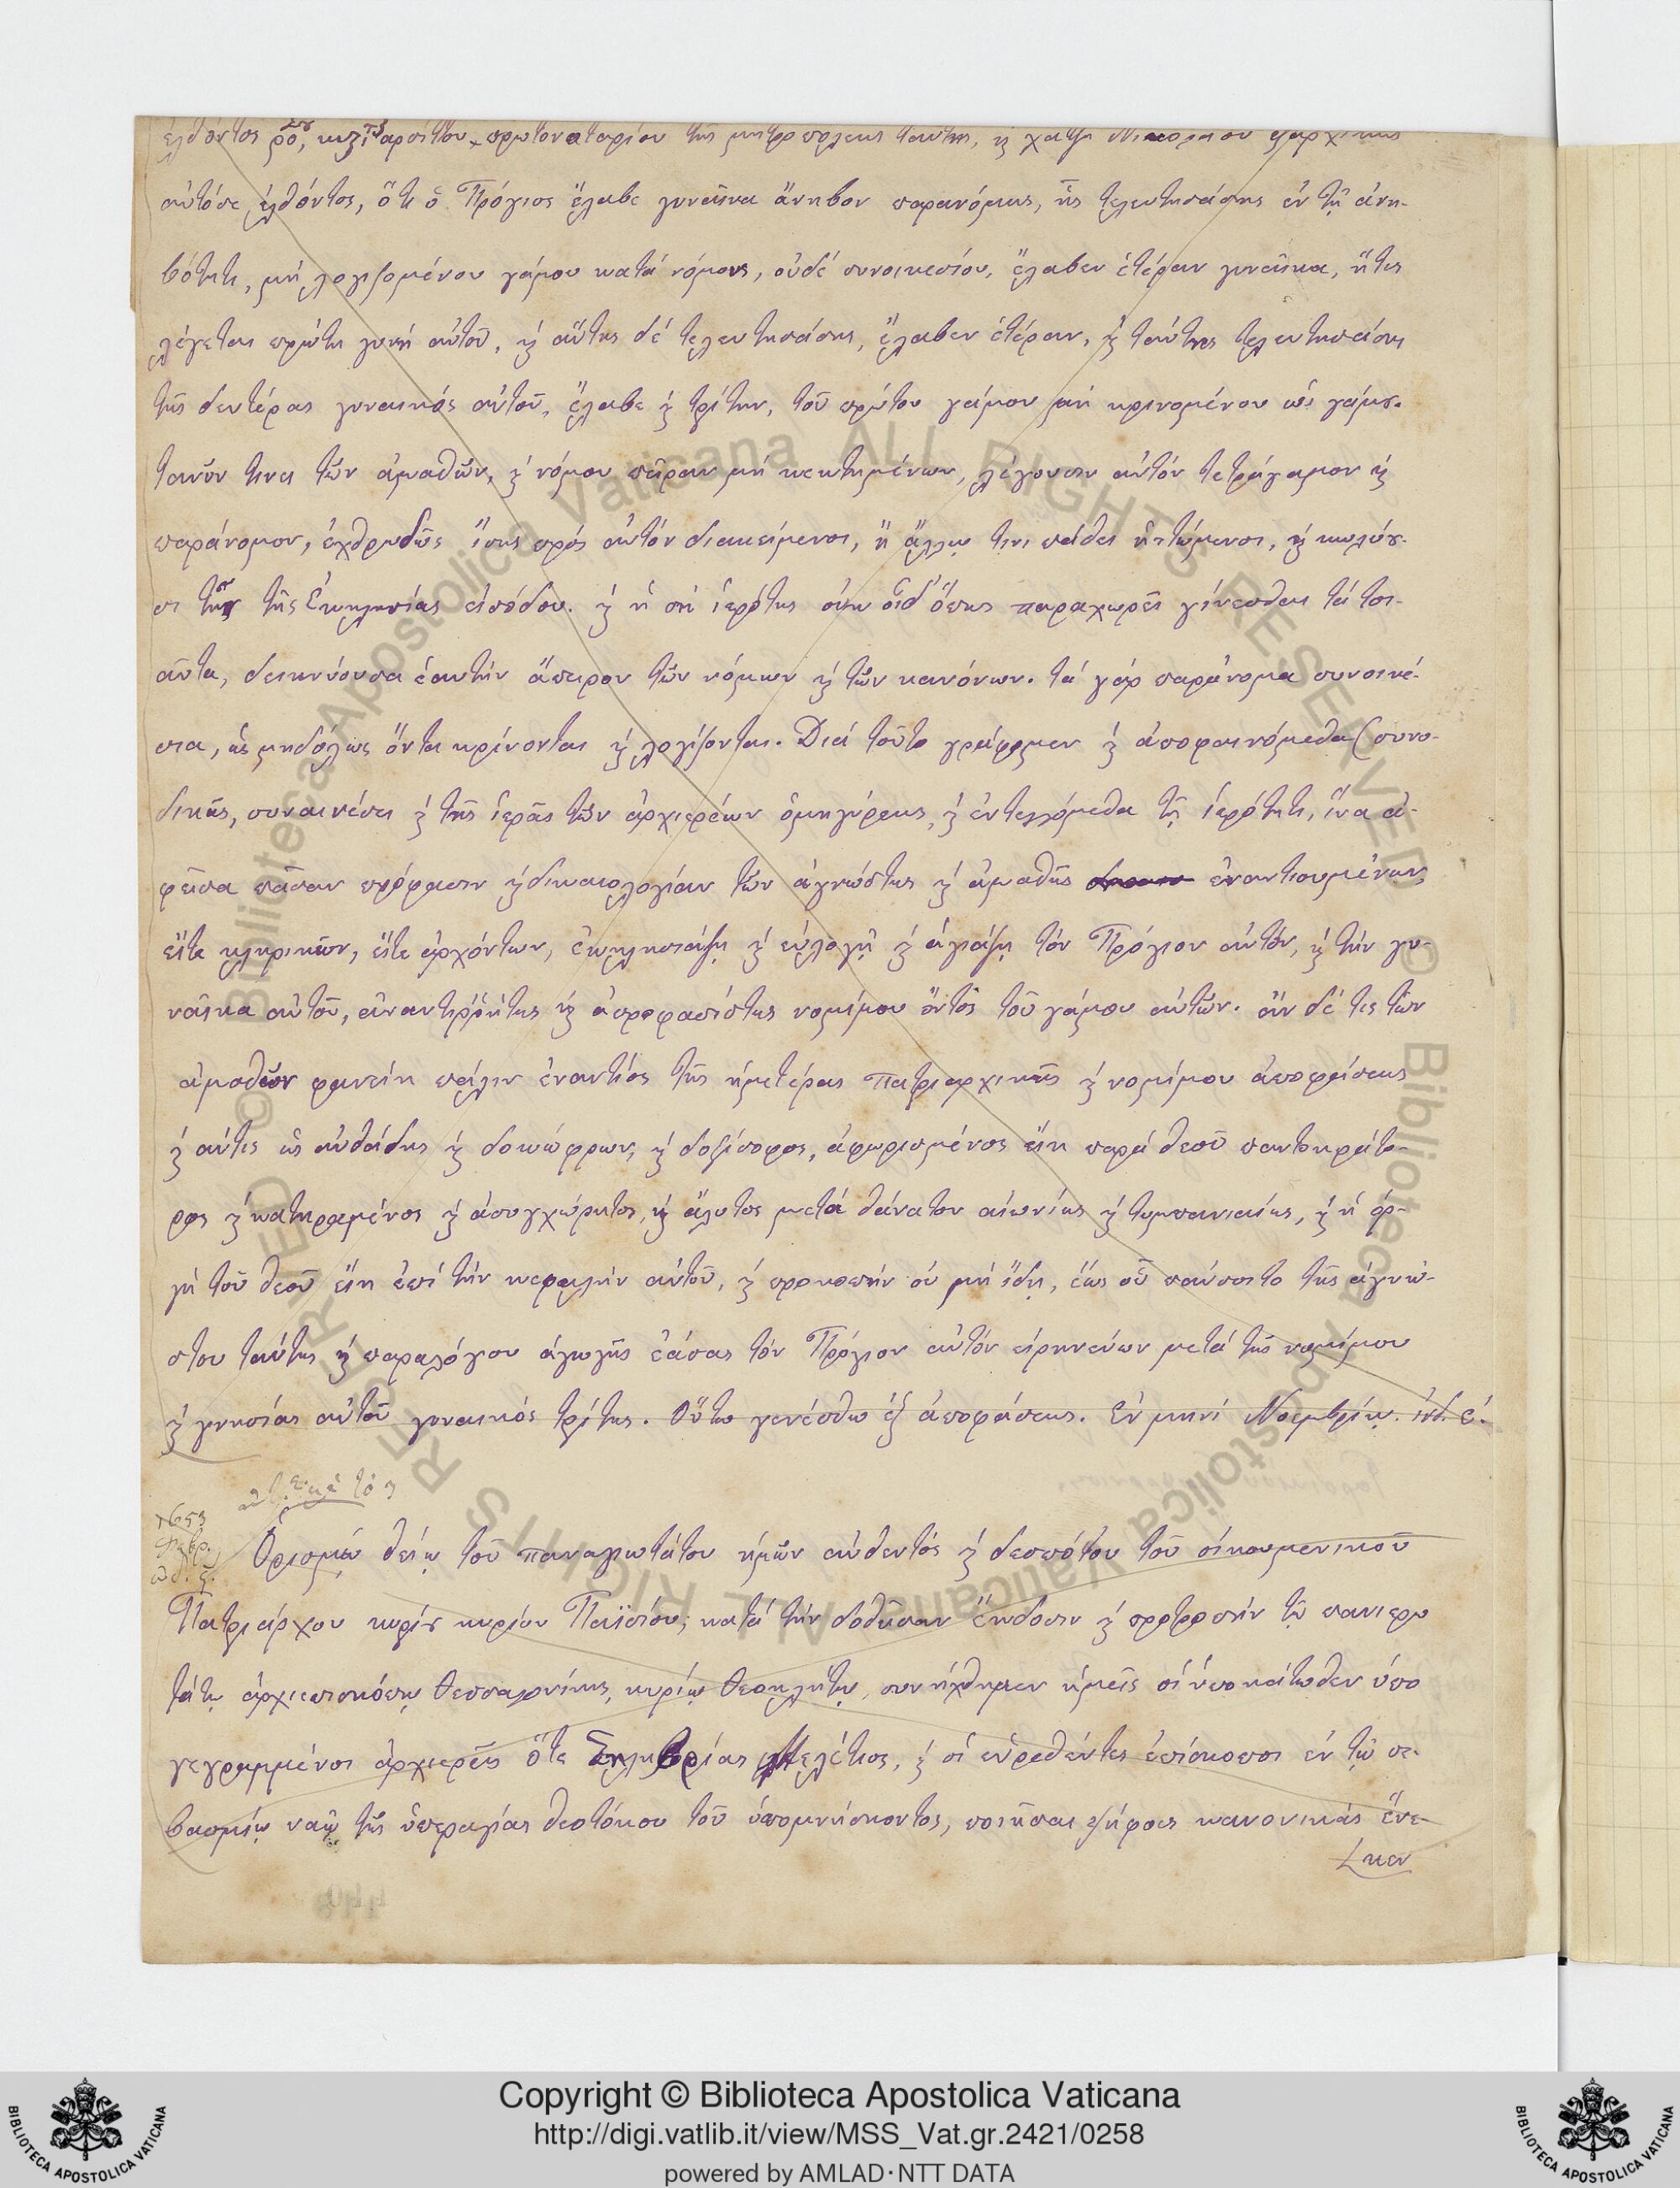 ἐλθόντος
αὐτόσε ἐλθόντος, ὅτι ὁ Πρόγιος ἔλαβε γυναῖκα ἄνηβον παρανόμως, ἧς τελευτησάσης ἐν τῇ ἀνη-
βότητι, μὴ λογιζομένου γάμου κατὰ νόμους, οὐδὲ συνοικεσίου, ἔλαβεν ἑτέραν γυναῖκα, ἥτις
λέγεται πρώτη γυνὴ αὐτοῦ, καὶ αὕτης δὲ τελευτησάσης, ἔλαβεν ἑτέραν, καὶ ταύτης τελευτησάσης
τῆς δευτέρας γυναικὸς αὐτοῦ, ἔλαβε καὶ τρίτην, τοῦ πρώτου γάμου μὴ κρινομένου ὡς γάμου.
τανῦν τινες τῶν ἀμαθῶν, καὶ νόμου πεῖραν μὴ κεκτημένων, λέγουσιν αὐτὸν τετράγαμον καὶ
παράνομον, ἐχθρωδῶς ἴσως πρὸς αὐτὸν διακείμενοι, ἢ ἄλλῳ τινι πάθει ἡττώμενοι, καὶ κωλύου-
σι τῆς Ἐκκλησίας εἰσόδου. καὶ ἡ σὴ ἱερότης οὐκ οἶδ' ὅπως παραχωρεῖ γίνεσθαι τὰ τοι-
αῦτα, δεικνύουσα ἑαυτὴν ἄπειρον τῶν νόμων καὶ τῶν κανόνων. τὰ γὰρ παράνομα συνοικέ-
σια, ὡς μηδόλως ὄντα κρίνονται καὶ λογίζονται. Διὰ τοῦτο γράφομεν καὶ ἀποφαινόμεθα (συνο-
δικῶς, συναινέσει καὶ τῆς ἱερᾶς τῶν ἀρχιερέων ὁμηγύρεως, καὶ ἐντελλόμεθα τῇ ἱερότητι, ἵνα ἀ-
φεῖσα πᾶσαν πρόφασιν καὶ δικαιολογίαν τῶν ἀγνώστως καὶ ἀμαθῶς ἐναντιουμένων,
εἴτε κληρικῶν, εἴτε ἀρχόντων, ἐκκλησιάζῃ καὶ εὐλογῇ καὶ ἁγιάζῃ τὸν Πρόγιον αὐτόν, καὶ τὴν γυ-
ναῖκα αὐτοῦ, ἀναντιῤῥήτως καὶ ἀπροφασίστως νομίμου ὄντος τοῦ γάμου αὐτῶν. ἂν δέ τις τῶν
ἀμαθῶν φανείη πάλιν ἐναντίος τῆς ἡμετέρας Πατριαρχικῆς καὶ νομίμου ἀποφάσεως
καὶ αὖτις ὡς αὐθάδης καὶ δοκώφρων, καὶ δοξόσοφος, ἀφωρισμένος εἴη παρὰ θεοῦ παντοκράτο-
ρος καὶ κατηραμένος καὶ ἀσυγχώρητος, καὶ ἄλυτος μετὰ θάνατον αἰωνίως καὶ τυμπανιαῖος, καὶ ἡ ὀρ-
γὴ τοῦ θεοῦ εἴη ἐπὶ τὴν κεφαλὴν αὐτοῦ, καὶ προκοπὴν οὐ μὴ ἴδῃ, ἕως οὗ παύσοιτο τῆς ἀγνώ-
στου ταύτης καὶ παραλόγου ἀγωγῆς ἐάσας τὸν Πρόγιον αὐτὸν εἰρηνεύων μετὰ τῆς νομίμου
καὶ γνησίας αὐτοῦ γυναικὸς τρίτης. Οὕτω γενέσθω ἐξ ἀποφάσεως. Ἐν μηνὶ Νοεμβρίῳ. ἰνδ. ε΄.
1653
Φεβρ.
ἰνδ. ς΄.
Ὁρισμῷ θείῳ τοῦ παναγιωτάτου ἡμῶν αὐθεντὸς καὶ δεσπότου τοῦ οἰκουμενικοῦ
Πατριάρχου κυρίου κυρίου Παϊσίου, κατὰ τὴν δοθεῖσαν ἔκδοσιν καὶ προτροπὴν τῷ πανιερω
τάτῳ ἀρχιεπισκόπῳ Θεσσαλονίκης, κυρίῳ Θεοκλήτῳ, συνήχθημεν ἡμεῖς οἱ ὑποκάτωθεν ὑπο
γεγραμμένοι ἀρχιερεῖς ὅτε Σηλυβρίας Μελέτιος, καὶ οἱ εὑρεθέντες ἐπίσκοποι ἐν τῷ σε-
βασμίῳ ναῷ τῆς ὑπεραγίας θεοτόκου τοῦ ὑπομνήσκοντος, ποιῆσαι ψήφους κανονικὰς ἕνε-
κεν
Copyright © Biblioteca Apostolica Vaticana
http://digi.vatlib.it/view/MSS_Vat.gr.2421/0258
powered by AMLAD·NTT DATA